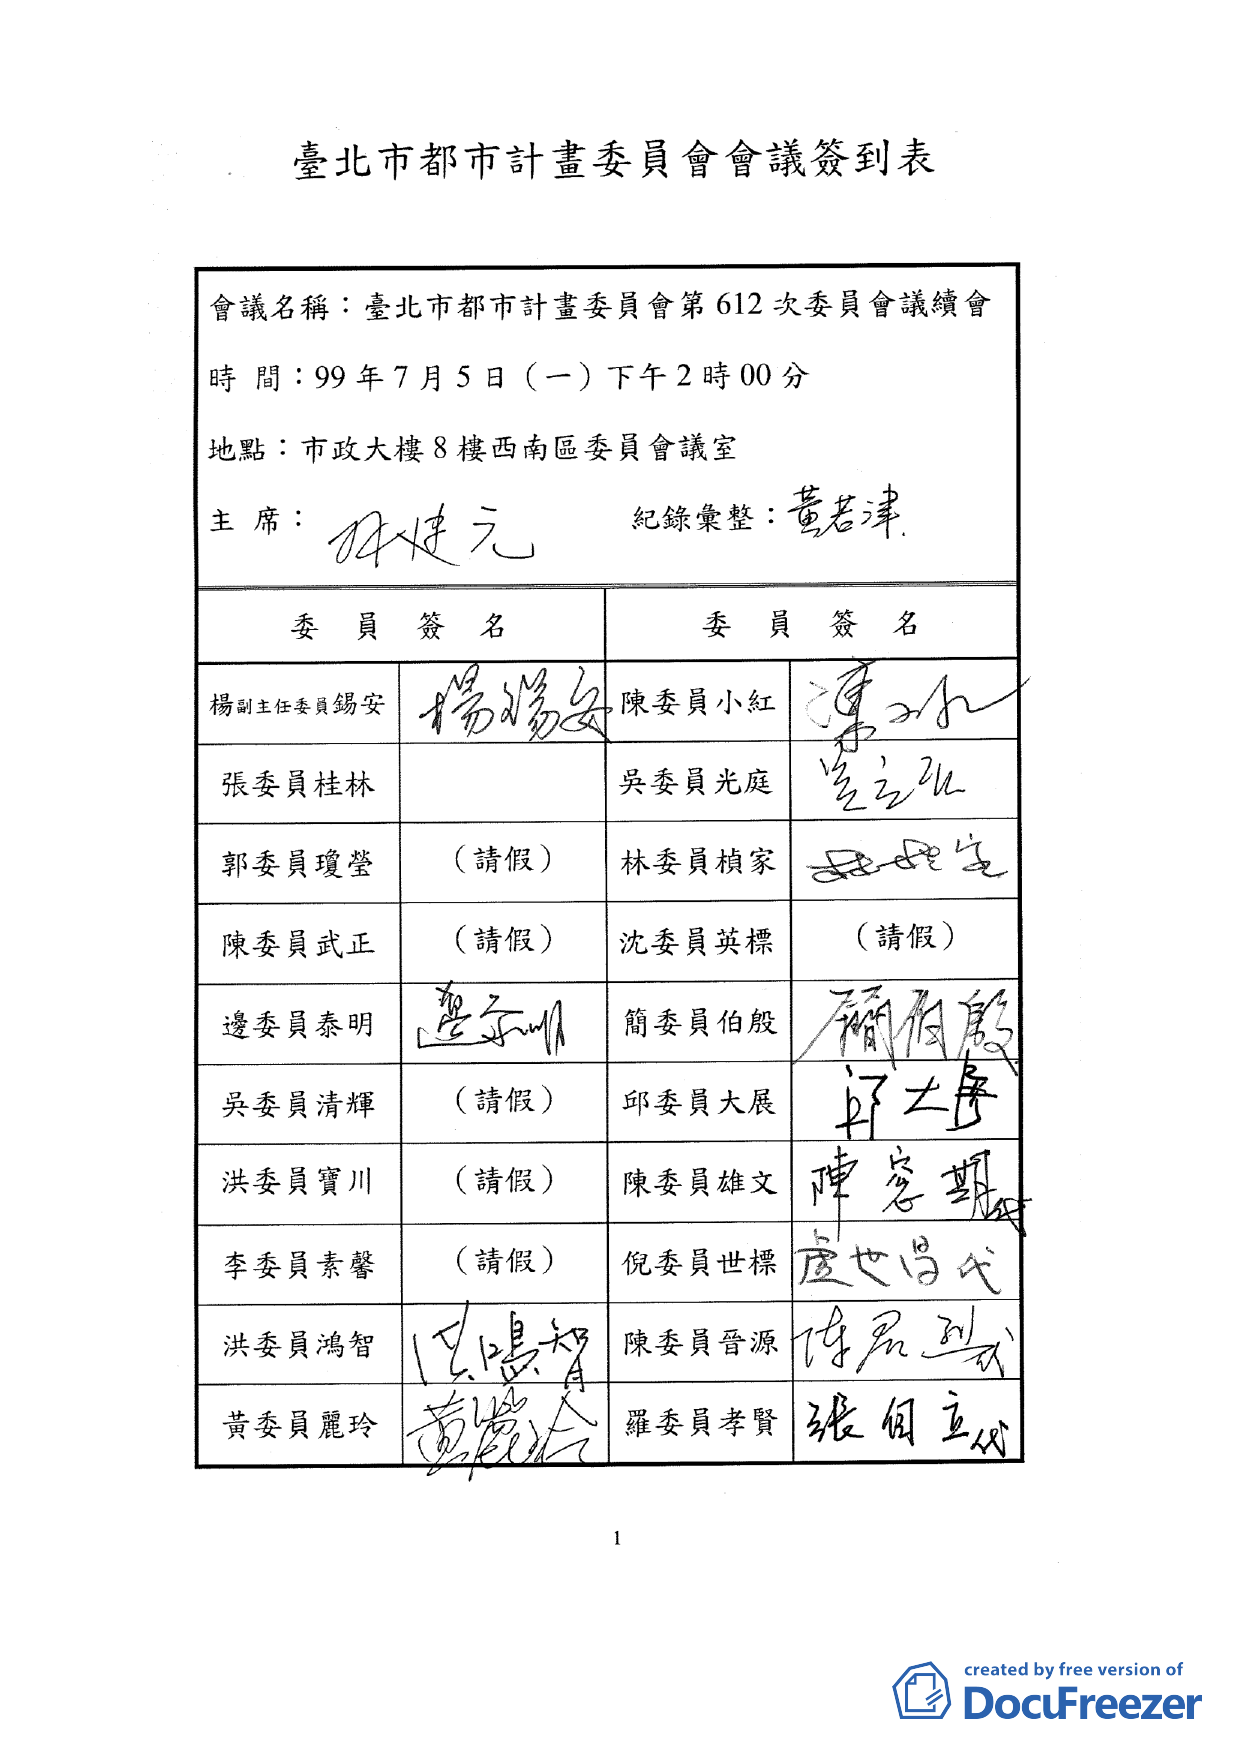 臺北市都市計畫委員會會議簽到表
會議名稱：臺北市都市計畫委員會第 612 次委員會議續會
時 間：99 年 7 月 5 日（一）下午 2 時 00 分
地點：市政大樓 8 樓西南區委員會議室
主 席：林建元 紀錄彙整：黃若津
委 員 簽 名 委 員 簽 名
楊副主任委員錫安 楊錫安 陳委員小紅 陳小紅
張委員桂林 吳委員光庭
郭委員瓊瑩 （請假） 林委員楨家 林楨家
陳委員武正 （請假） 沈委員英標 （請假）
邊委員泰明 邊泰明 簡委員伯殷 簡伯殷
吳委員清輝 （請假） 邱委員大展 邱大展
洪委員寶川 （請假） 陳委員雄文 陳 期代
李委員素馨 （請假） 倪委員世標 盧世昌代
洪委員鴻智 洪鴻智 陳委員晉源 陳君 代
黃委員麗玲 黃麗玲 羅委員孝賢 張 立代
1
created by free version of
DocuFreezer